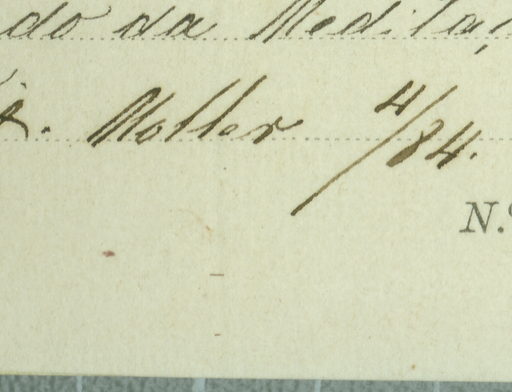 do da Medita
. Moller 4/84.
N.